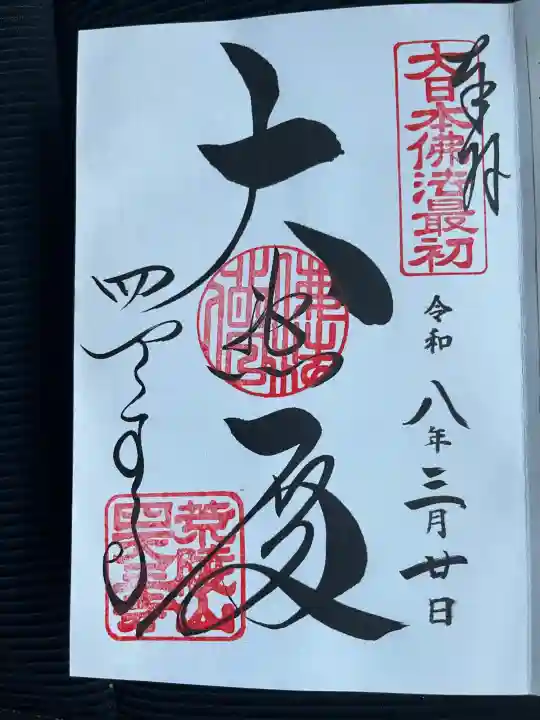 奉拝
大日本佛法最初
令和八年三月廿日
大悲殿
四天王寺
荒陵山
四天王寺